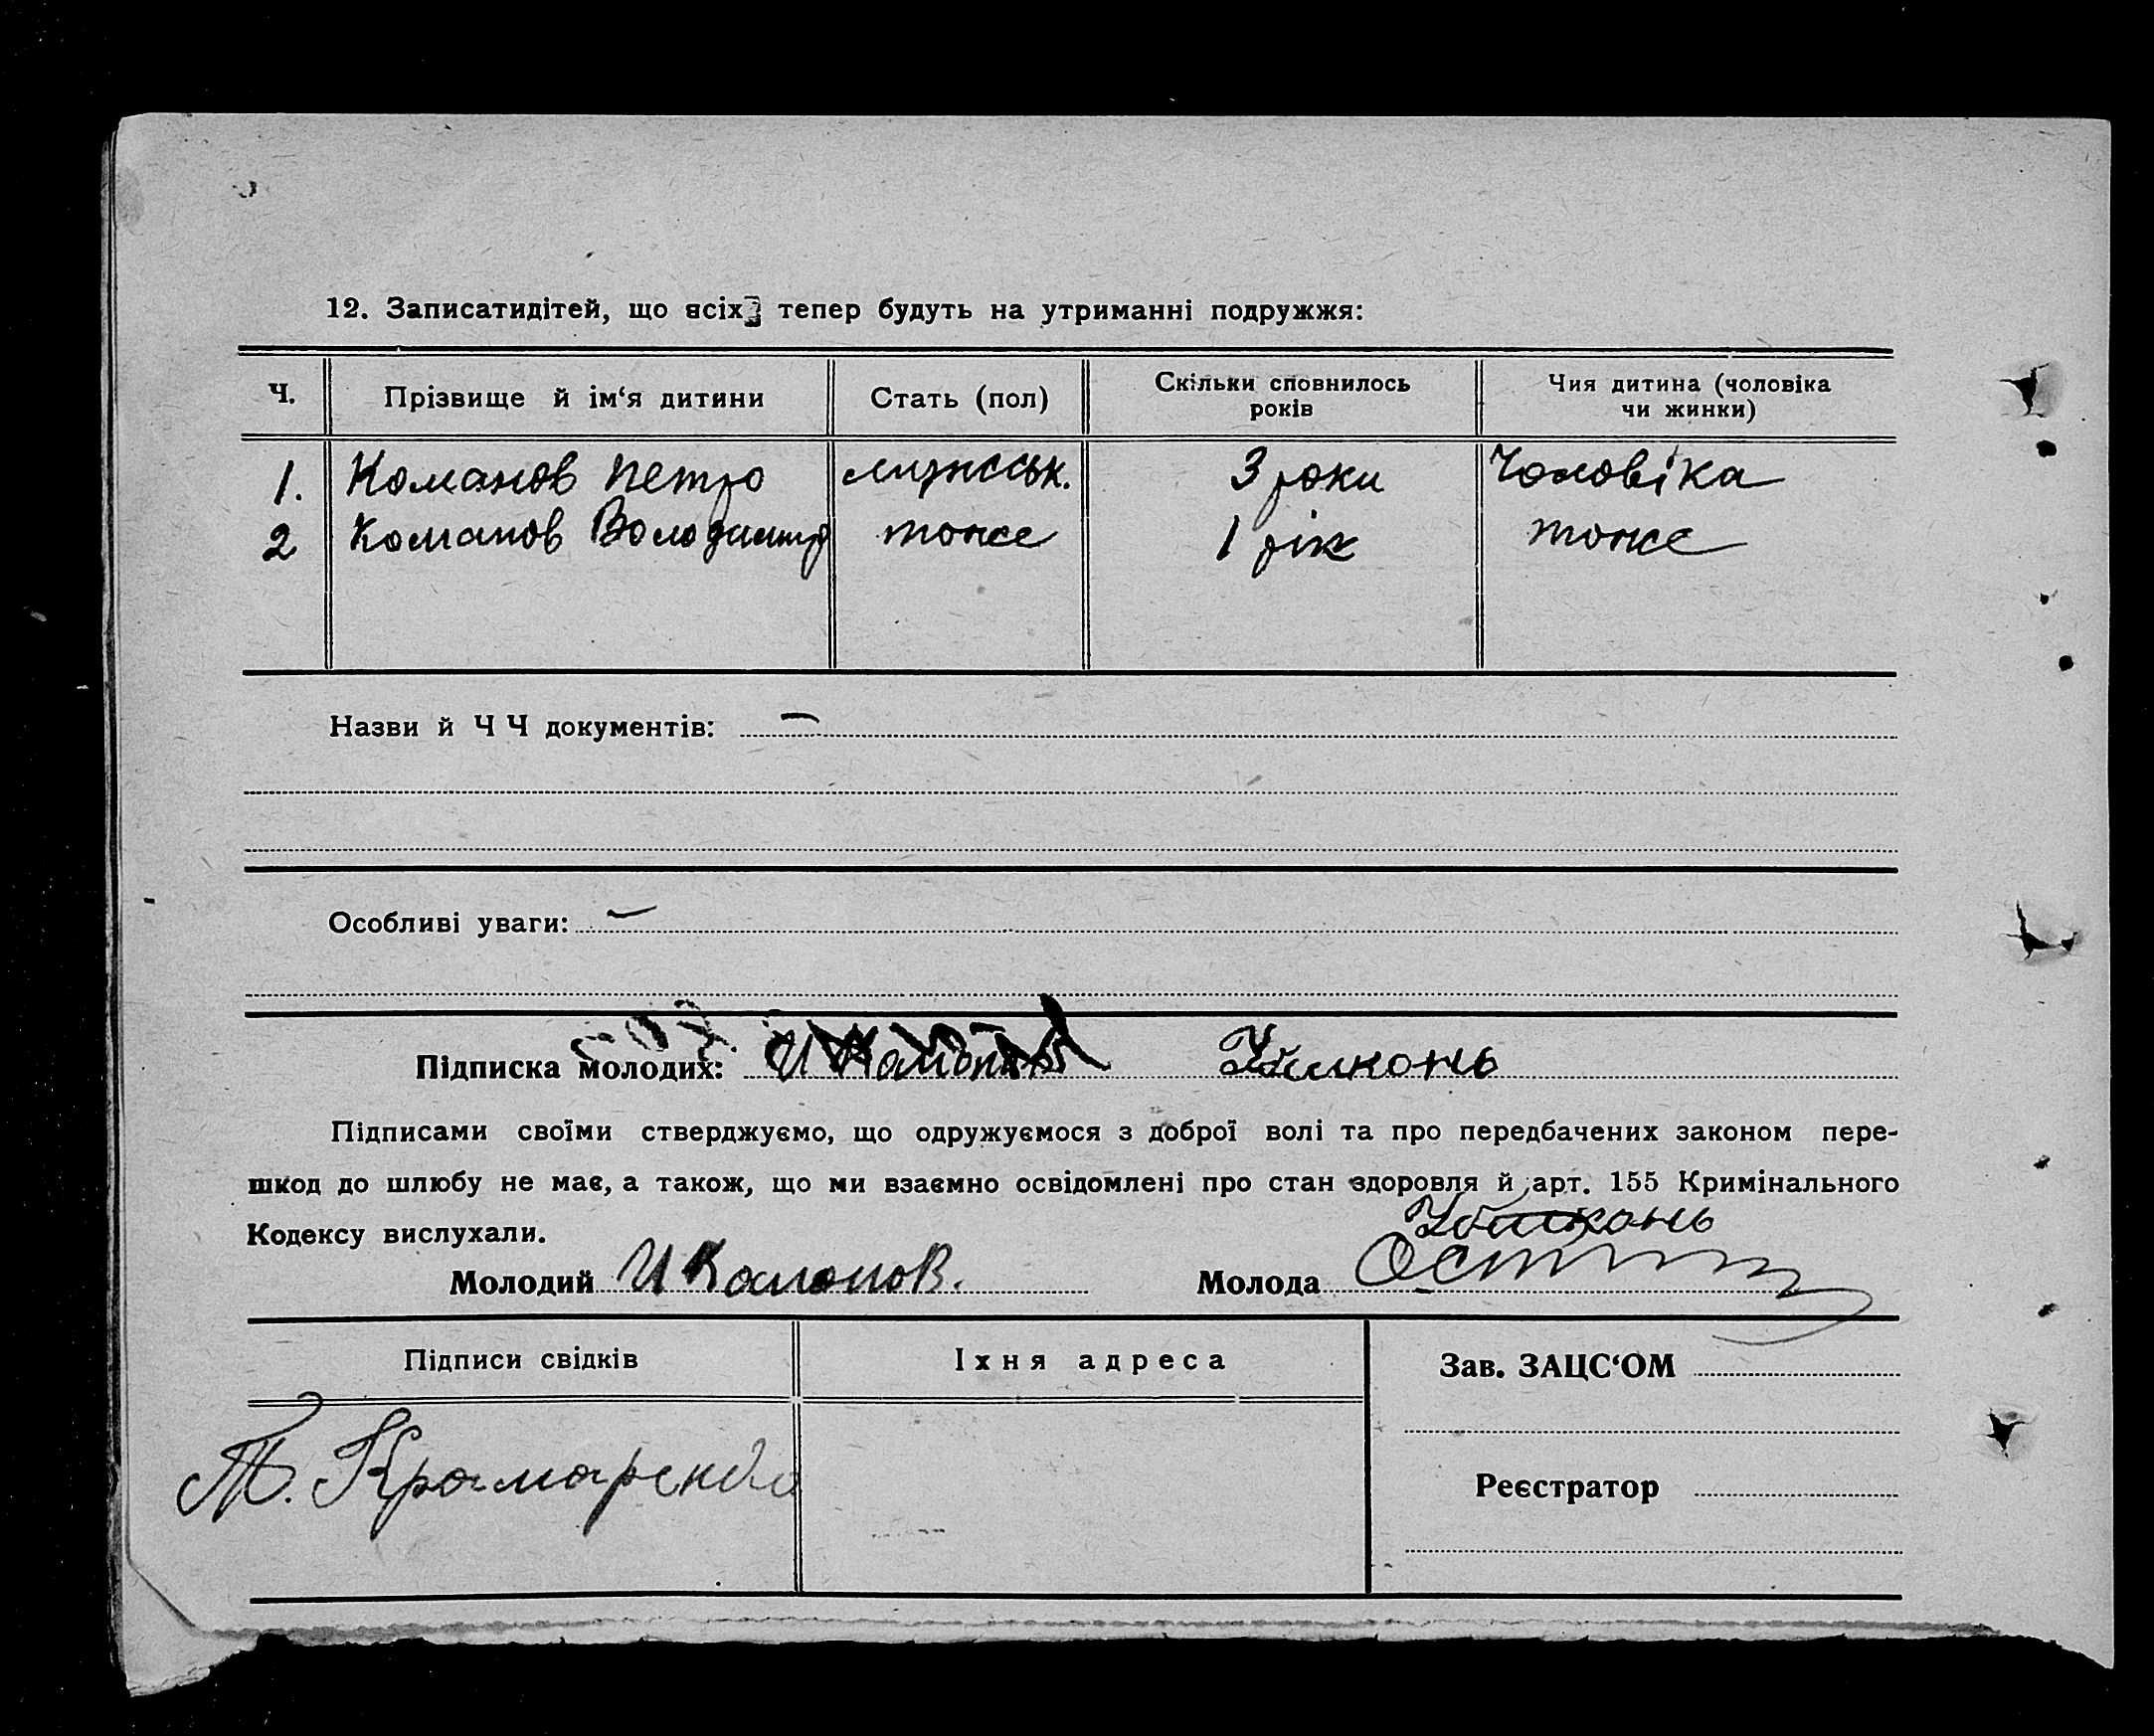 12. Записатидітей, що всіх тепер будуть на утриманні подружжя:
Ч. Прізвище й ім‘я дитини Стать (пол) Скільки сповнилось років Чия дитина (чоловіка чи жинки)
1. Команов Петро мужськ. 3 роки Чоловіка
2 Команов Володимир тоже 1 рік тоже
Назви й Ч Ч документів: —
Особливі уваги: —
Підписка молодих:
Підписами своїми стверджуємо, що одружуємося з доброї волі та про передбачених законом пере-
шкод до шлюбу не має, а також, що ми взаємно освідомлені про стан здоровля й арт. 155 Кримінального
Кодексу вислухали.
Молодий И Команов. Молода
Підписи свідків Іхня адреса Зав. ЗАЦС‘ОМ
Т. Крамаренко
Реєстратор